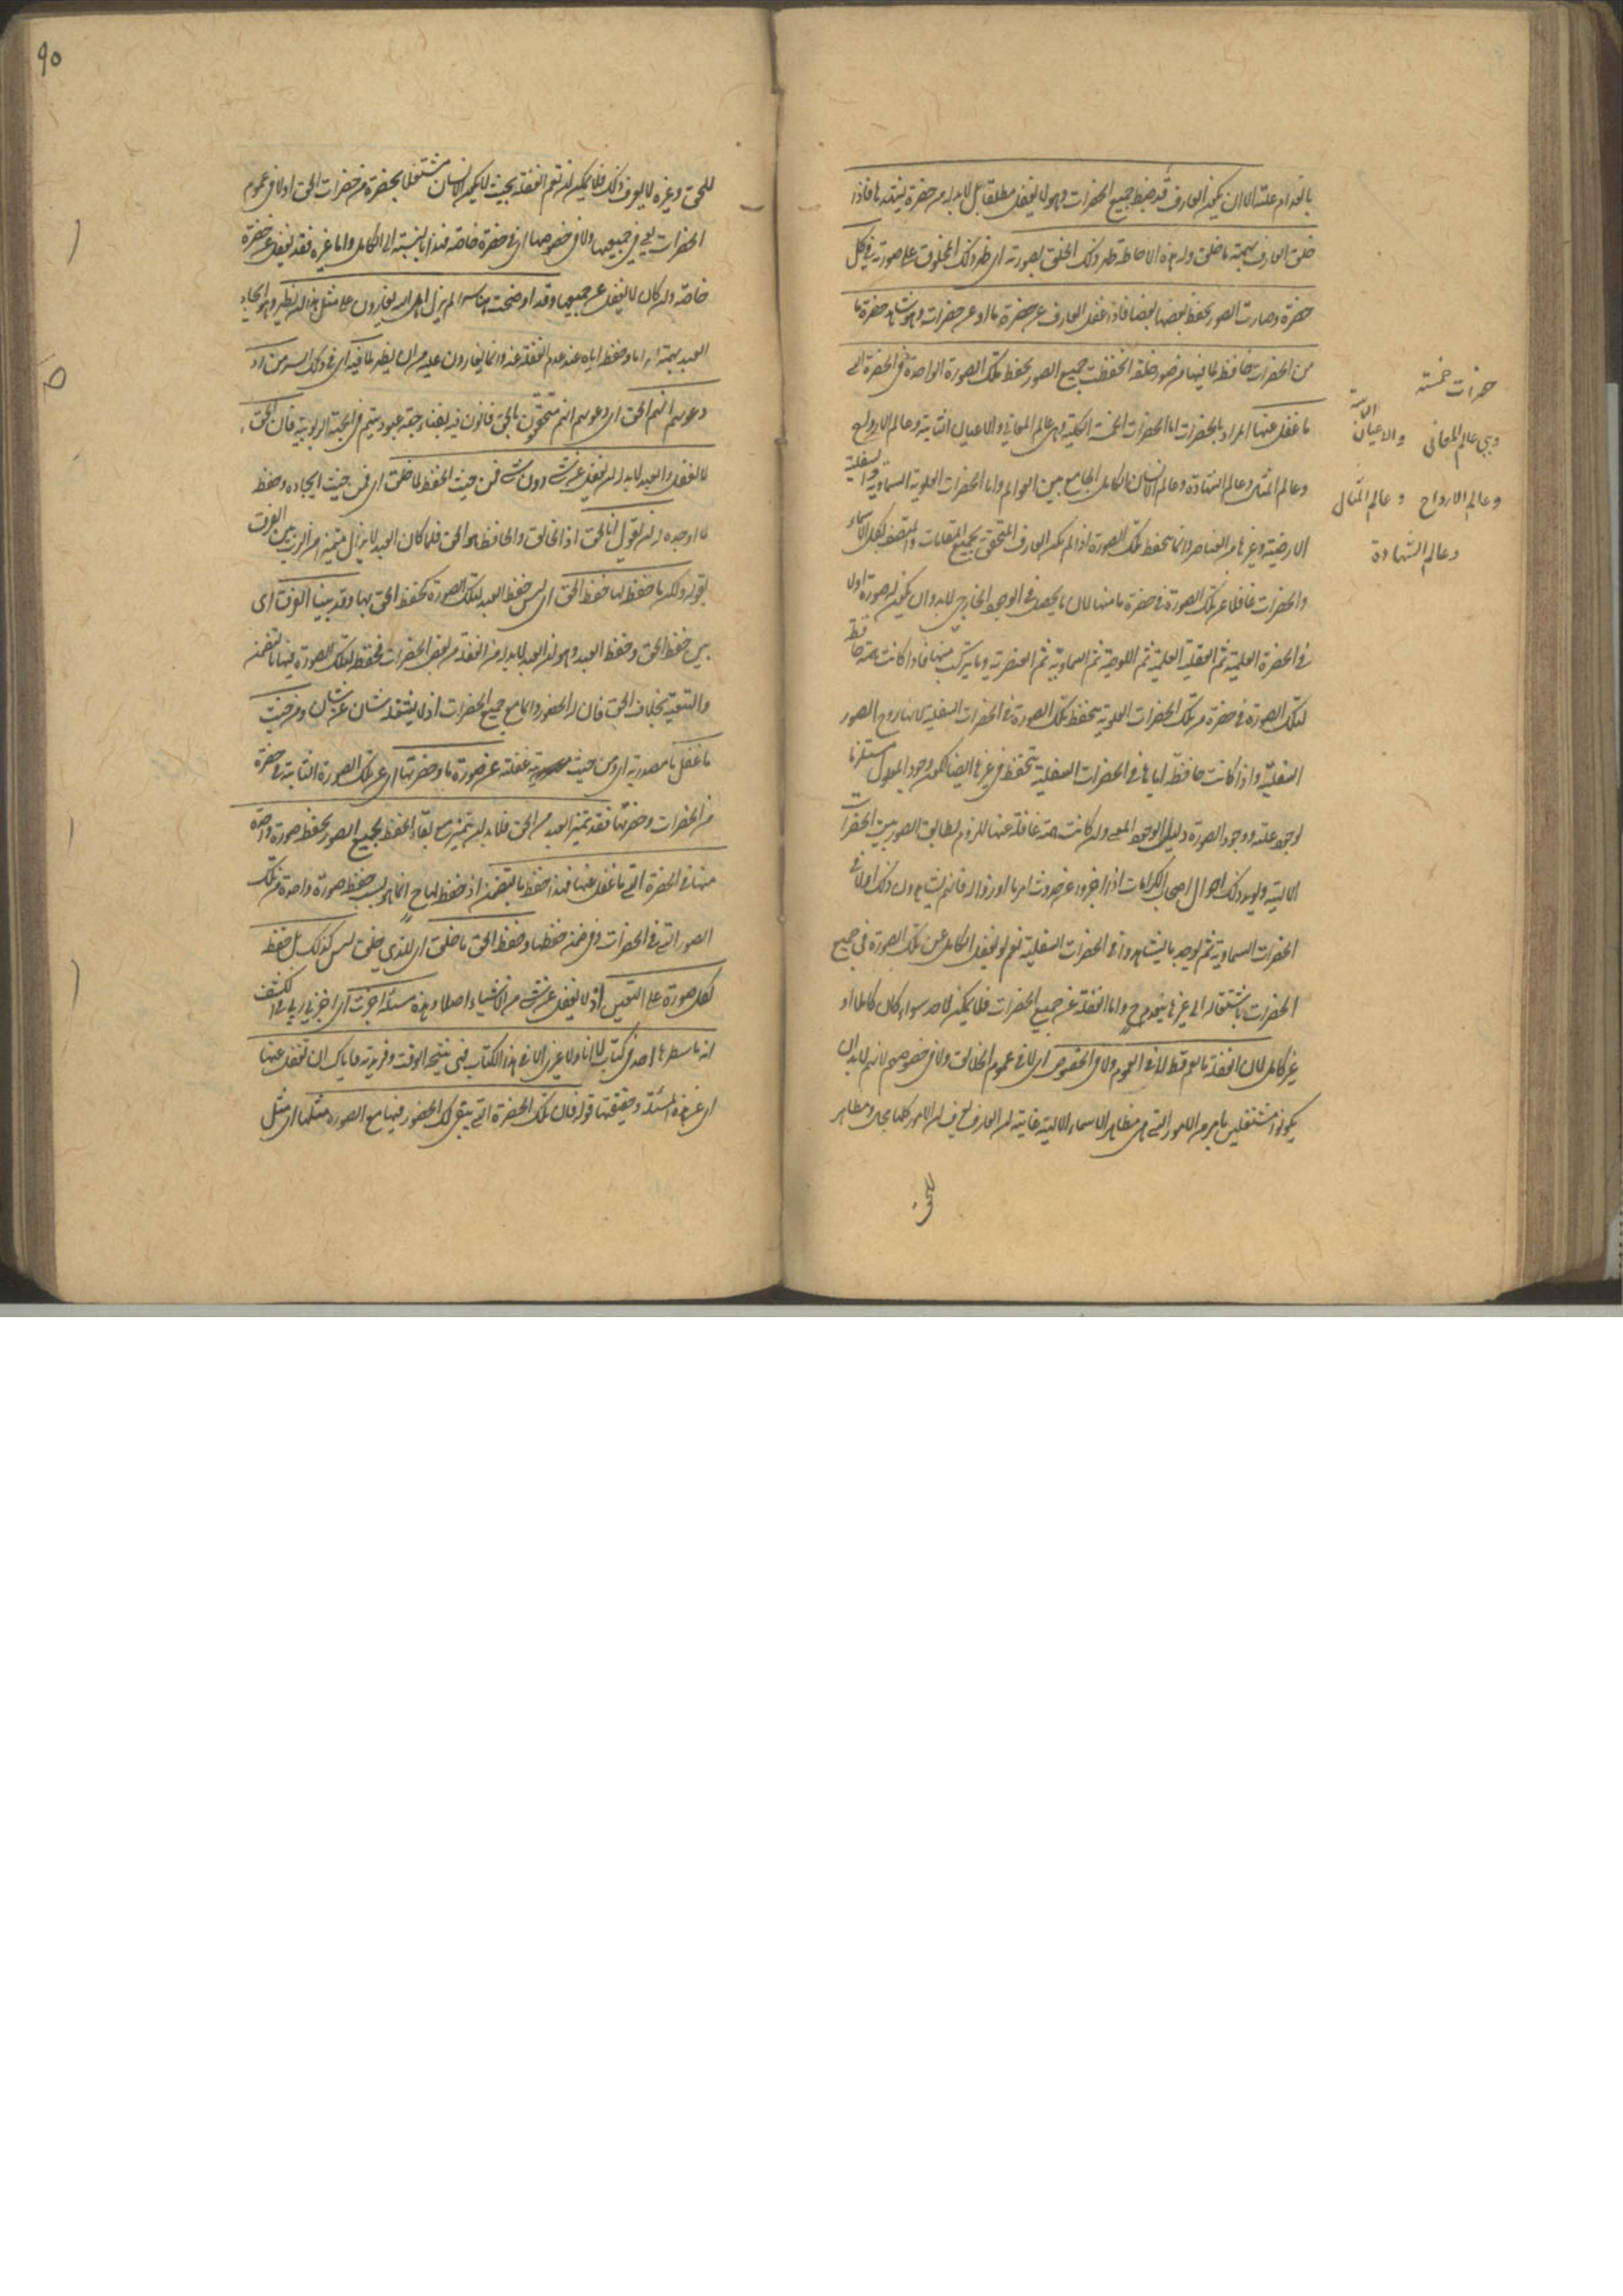 بانعدام علته الا ان يكون العارف قد ضبط جميع الحضرات وهو لا يغفل مطلقا بل لا بد له من حضرة يشهدها فاذا
خلق العارف بهمته ما خلق وله هذه الاحاطة ظهر ذلك الخلق بصورته اى ظهر ذلك المخلوق على صورته فى كل
حضرة وصارت الصور يحفظ بعضها بعضا فاذا غفل العارف عن حضرة ما او عن حضرات وهو شاهد حضرة ما
من الحضرات حافظ لما فيها من صور خلقه انحفظت جميع الصور بحفظ تلك الصورة الواحدة فى الحضرة التى
ما غفل عنها المراد بالحضرات اما الحضرات الخمس الكلية وهى عالم المعانى والاعيان الثابتة وعالم الارواح
وعالم المثال وعالم الشهادة وعالم الانسان الكامل الجامع بين العوالم واما الحضرات العلوية السماوية والسفلية
الارضية وغيرها من العناصر وانما تحفظ تلك الصورة اذا لم يكن العارف المتحقق بجميع المقامات والمتصف بكل الاسماء
والحضرات غافلا عن تلك الصورة فى حضرة ما منها لان ما يحصل فى الوجود الخارجى لا بد وان يكون له صورة اولا
فى الحضرة العلمية ثم العقلية القلمية ثم اللوحية ثم السماوية ثم العنصرية وما يتركب منها فاذا كانت همته حافظة
لتلك الصورة فى حضرة من تلك الحضرات العلوية تنحفظ تلك الصورة فى الحضرات السفلية لانها روح الصور
السفلية واذا كانت حافظة اياها فى الحضرات السفلية تنحفظ فى غيرها ايضا لكون وجود المعلول مستلزما
لوجود علته ووجود الصورة دليلا لوجود المعنى وان كانت همته غافلة عنها للزوم تطابق الصور بين الحضرات
الالهية ويؤيد ذلك احوال اصحاب الكرامات اذا اخبروا عن حدوث امر ما او زواله فانهم يشاهدون ذلك اولا فى
الحضرات السماوية ثم يوجد ما يشاهدوا فى الحضرات السفلية نعم لو يغفل الكامل عن تلك الصورة فى جميع
الحضرات باشتغاله الى غيرها ينعدم ح واما الغفلة عن جميع الحضرات فلا يمكن لاحد سواء كان كاملا او
غير كامل لان الغفلة ما تعم قط لا فى العموم ولا فى الخصوص اى لا فى عموم الخلائق ولا فى خصوصهم لانهم لا بد ان
يكونوا مشتغلين بامر من الامور التى هى مظاهر الاسماء الالهية غايته ان العارف يعرف ان الامور كلها مجالى ومظاهر
للحق
حضرات خمسة
وهى عالم المعانى والاعيان الثابتة
وعالم الارواح وعالم المثال
وعالم الشهادة
٩٥
للحق وغيره لا يعرف ذلك فلا يمكن ان تعم الغفلة بحيث لا يكون الانسان مشتغلا بحضرة من حضرات الحق اولا فى عموم
الحضرات يعنى فى جميعها ولا فى خصوصها اى فى حضرة خاصة فهذا بالنسبة الى الكامل واما غيره فقد يغفل عن حضرة
خاصة وان كان لا يغفل عن جميعها وقد اوضحت هنا سرا لم يزل اهل الله يغارون على مثل هذا ان يظهر وهو ايجاد
العبد بهمته امرا ما وحفظ اياه عند عدم الغفلة عنه وانما يغارون عليه من ان يظهر لما فيه اى فى ذلك السر من رد
دعويهم انهم الحق اى دعويهم انهم متحققون بالحق فانون فيه بفناء جهة عبوديتهم فى الجهة الربوبية فان الحق
لا يغفل والعبد لا بد له ان يغفل عن شئ دون شئ فمن حيث الحفظ لما خلق اى فمن حيث ايجاده وحفظ
لما اوجده له ان يقول انا الحق اذ الخالق والحافظ هو الحق فلما كان العبد لا يزال متميزا من الرب بين الفرق
بقوله ولكن ما حفظه لها حفظ الحق اى ليس حفظ العبد لتلك الصورة كحفظ الحق بها وقد بينا الفرق اى
بين حفظ الحق وحفظ العبد وهو ان العبد لا بد له من الغفلة من بعض الحضرات فحفظه لتلك الصورة فيها بالتضمن
والتبعية بخلاف الحق فان له الحضور دائما مع جميع الحضرات اذ لا يشغله شان عن شان ومن حيث
ما غفل ما مصدرية اى ومن حيث غفلته عن صورة ما وحضرتها اى عن تلك الصورة الثابتة فى حضرة
من الحضرات وحضرتها فقد تميز العبد من الحق فلا بد ان يتميز مع بقاء الحفظ لجميع الصور بحفظه صورة واحدة
منها فى الحضرة التى ما غفل عنها فهذا حفظ بالتضمن اذ حفظه لها ح انما هو بسبب حفظ صورة واحدة من تلك
الصور التى فى الحضرات وفى ضمن حفظها وحفظ الحق ما خلق اى للذى خلق ليس كذلك بل حفظه
لكل صورة على التعيين اذ لا يغفل عن شئ من الاشياء اصلا وهذه مسئلة اخبرت اى اخبرنى ربى فى الكشف
انه ما سطرها احد فى كتاب لا انا ولا غيرى الا فى هذا الكتاب فهى يتيمة الوقت وفريدته فاياك ان تغفل عنها
اى عن هذه المسئلة وحقيقتها قوله فان تلك الحضرة التى يبقى لك الحضور فيها مع الصورة مثلها اى مثل